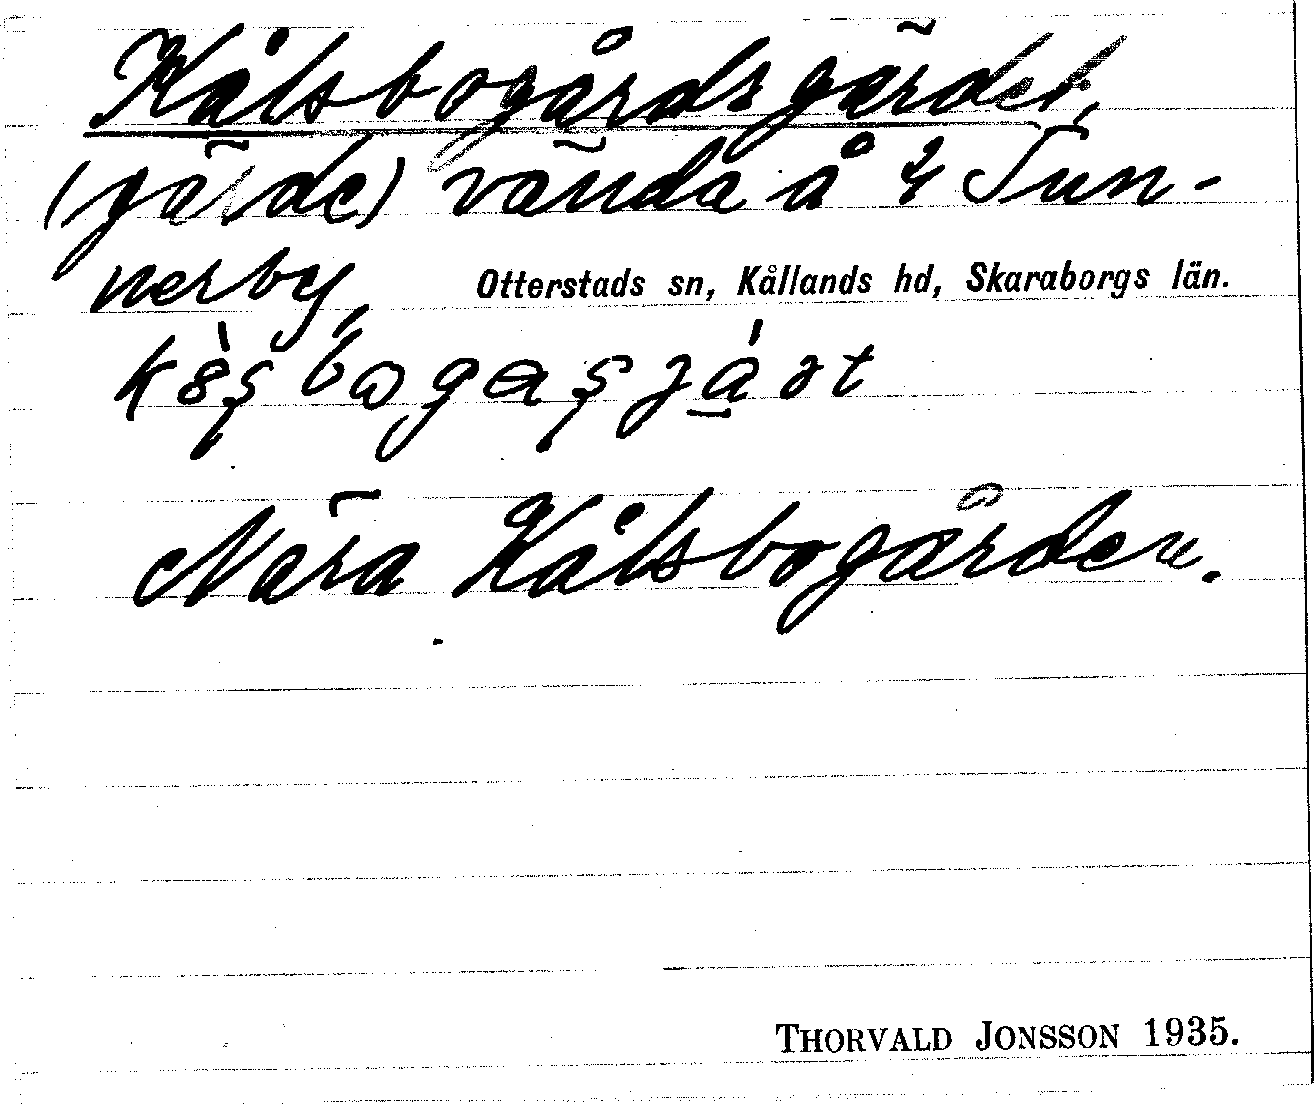 Kålsbogårdsgärdet,
(gärde) vända å 4 Tun-
nerby, Otterstads sn, Kållands hd, Skaraborgs län.
Nära Kålsbogården.
THORVALD JONSSON 1935.